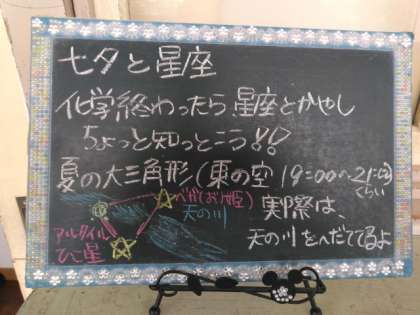 七夕と星座
化学終わったら星座とかやし
ちょっと知っとこう!!
夏の大三角形(東の空 19:00〜21:00
くらい
ベガ(おり姫)
天の川
アルタイル
ひこ星
実際は、
天の川をへだててるよ